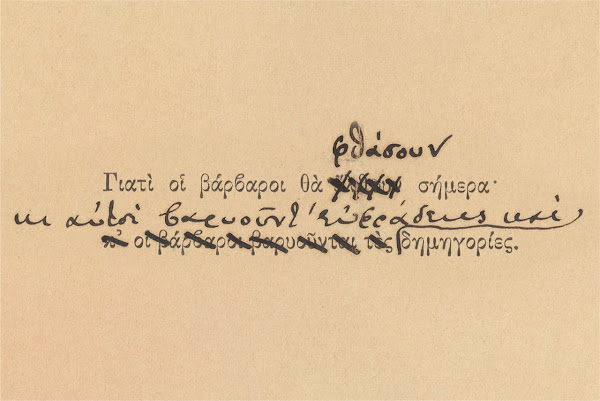 φθάσουν
Γιατὶ οἱ βάρβαροι θὰ ἔλθουν σήμερα·
κι αὐτοὶ βαρυοῦντ' εὐφράδειες καὶ
κ' οἱ βάρβαροι βαρυοῦνται τὲς δημηγορίες.